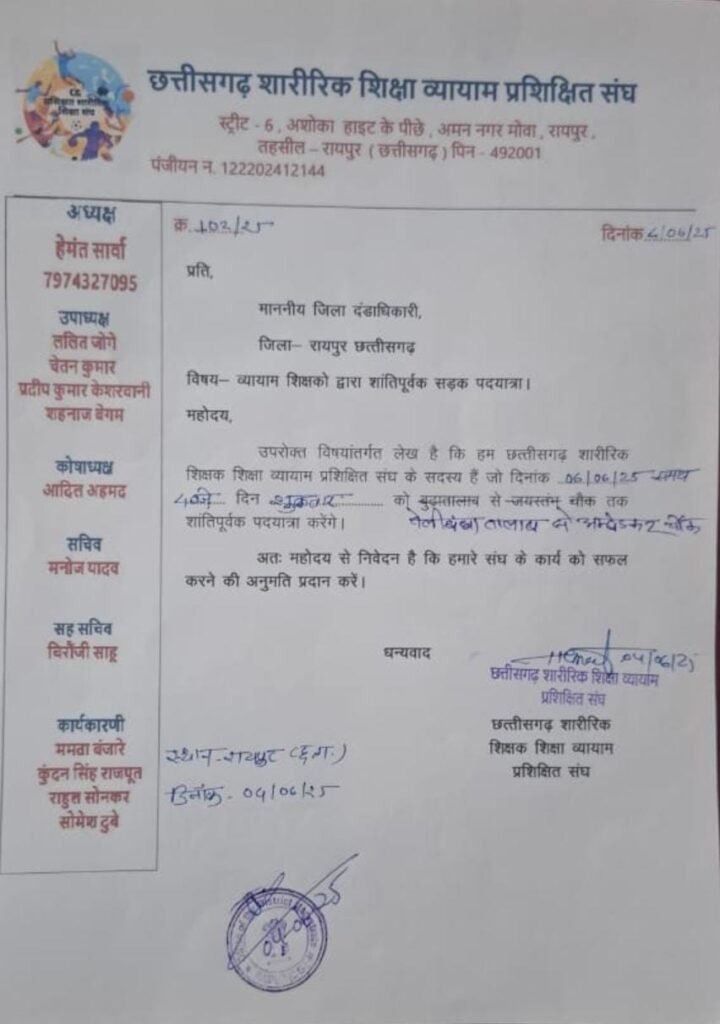 CG
प्रशिक्षित शारीरिक
शिक्षा संघ
छत्तीसगढ़ शारीरिक शिक्षा व्यायाम प्रशिक्षित संघ
स्ट्रीट - 6 , अशोका हाइट के पीछे , अमन नगर मोवा , रायपुर ,
तहसील – रायपुर ( छत्तीसगढ़ ) पिन - 492001
पंजीयन न. 122202412144
अध्यक्ष
हेमंत सार्वा
7974327095
उपाध्यक्ष
ललित जोगे
चेतन कुमार
प्रदीप कुमार केशरवानी
शहनाज बेगम
कोषाध्यक्ष
आदित अहमद
सचिव
मनोज यादव
सह सचिव
चिरौंजी साहू
कार्यकारणी
ममवा बंजारे
कुंदन सिंह राजपूत
राहुल सोनकर
सोमेश दुबे
क्र. 102/25
दिनांक 4/06/25
प्रति,
माननीय जिला दंडाधिकारी,
जिला– रायपुर छत्तीसगढ़
विषय– व्यायाम शिक्षको द्वारा शांतिपूर्वक सड़क पदयात्रा।
महोदय,
उपरोक्त विषयांतर्गत लेख है कि हम छत्तीसगढ़ शारीरिक
शिक्षक शिक्षा व्यायाम प्रशिक्षित संघ के सदस्य हैं जो दिनांक 06/06/25 समय
4 बजे दिन शुक्रवार को बुढ़ातालाब से जयस्तंभ चौक तक
शांतिपूर्वक पदयात्रा करेंगे। तेलीबांधा तालाब से अम्बेडकर चौक
अतः महोदय से निवेदन है कि हमारे संघ के कार्य को सफल
करने की अनुमति प्रदान करें।
धन्यवाद
04/06/25
छत्तीसगढ़ शारीरिक शिक्षा व्यायाम
प्रशिक्षित संघ
छत्तीसगढ़ शारीरिक
शिक्षक शिक्षा व्यायाम
प्रशिक्षित संघ
स्थान - रायपुर (छ.ग.)
दिनांक - 04/06/25